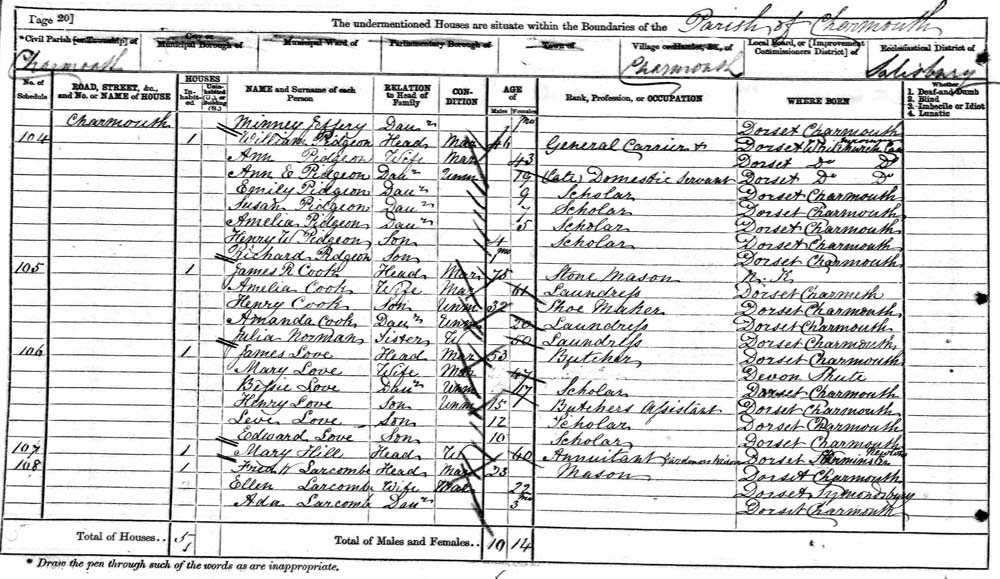 Page 20]
The undermentioned Houses are situate within the Boundaries of the Parish of Charmouth
*Civil Parish [or Township] of Charmouth | City or Municipal Borough of | Municipal Ward of | Parliamentary Borough of | Town of | Village or Hamlet, &c., of Charmouth | Local Board, or [Improvement Commissioners District] of | Ecclesiastical District of Salisbury
No. of Schedule | ROAD, STREET, &c., and No. or NAME of HOUSE | HOUSES Inhabited | Uninhabited (U.), or Building (B.) | NAME and Surname of each Person | RELATION to Head of Family | CONDITION | AGE of Males Females | Rank, Profession, or OCCUPATION | WHERE BORN | Whether 1. Deaf-and-Dumb 2. Blind 3. Imbecile or Idiot 4. Lunatic
Charmouth Minney Jeffery Daur 1 mo Dorset Charmouth
104 1 William Pidgeon Head Mar 46 General Carrier + Dorset Whitchurch
Ann Pidgeon Wife Mar 43 Dorset Do Do
Ann E Pidgeon Daur Unm 19 (late) Domestic Servant Dorset Do Do
Emily Pidgeon Daur 9 Scholar Dorset Charmouth
Susan Pidgeon Daur 7 Scholar Dorset Charmouth
Amelia Pidgeon Daur 5 Scholar Dorset Charmouth
Henry W Pidgeon Son 4 Scholar Dorset Charmouth
Richard Pidgeon Son 1 mo Dorset Charmouth
105 1 James R Cook Head Mar 75 Stone Mason N. K.
Amelia Cook Wife Mar 61 Laundress Dorset Charmouth
Henry Cook Son Unm 32 Shoe Maker Dorset Charmouth
Amanda Cook Daur Unm 20 Laundress Dorset Charmouth
Julia Norman Sister W Laundress Dorset Charmouth
106 1 James Love Head Mar 53 Butcher Dorset Charmouth
Mary Love Wife Mar 47 Devon Shute
Bessie Love Daur Unm 17 Scholar Dorset Charmouth
Henry Love Son Unm 15 Butchers Assistant Dorset Charmouth
Levi Love Son 12 Scholar Dorset Charmouth
Edward Love Son 10 Scholar Dorset Charmouth
107 1 Mary Hill Head W 60 Annuitant Dorset Sturminster Newton
108 1 Fredk Larcombe Head Mar 23 Mason Dorset Charmouth
Ellen Larcombe Wife Mar 22 Dorset Symondsbury
Ada Larcombe Daur 3 mo Dorset Charmouth
Total of Houses.. 5 Total of Males and Females.. 10 14
* Draw the pen through such of the words as are inappropriate.